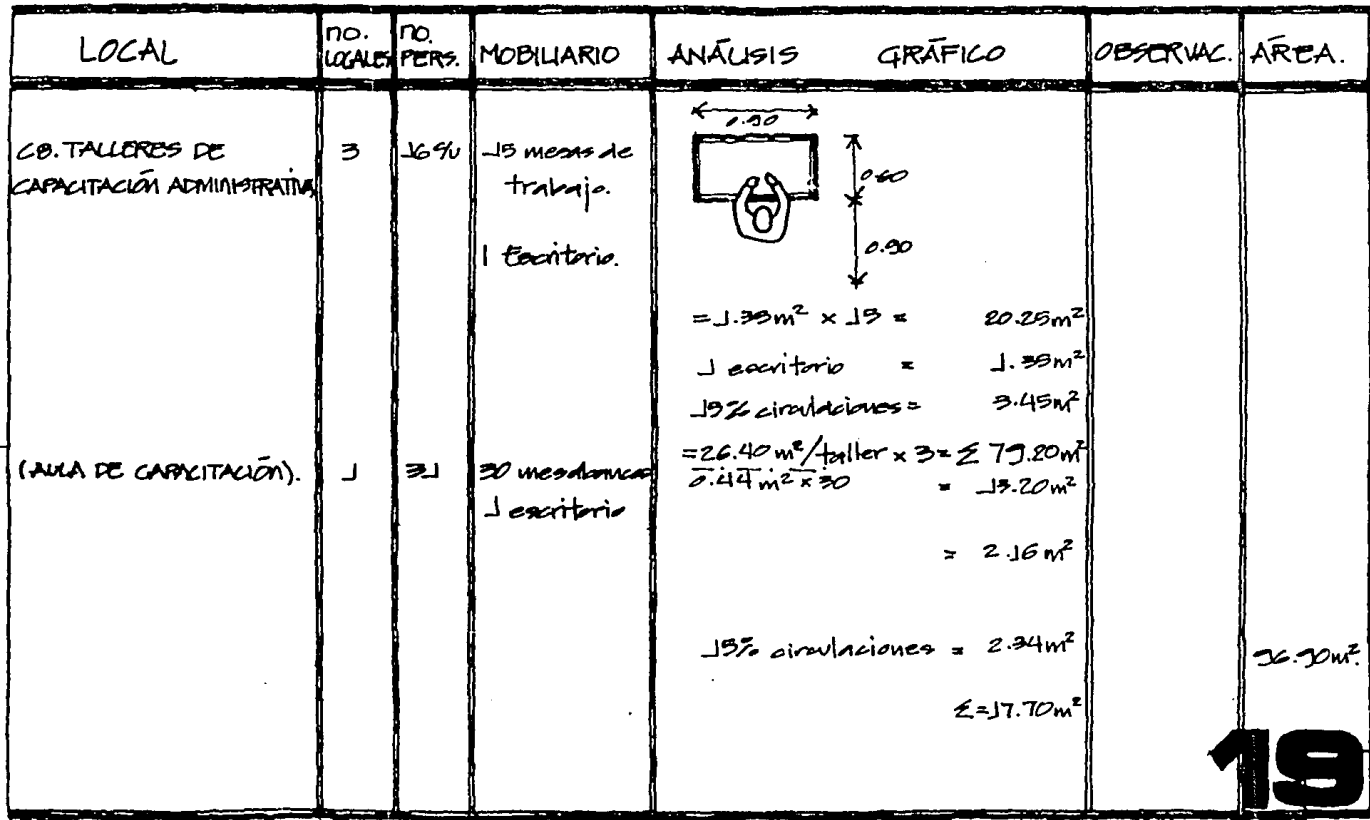 LOCAL
no. LOCALES
no. PERS.
MOBILIARIO
ANÁLISIS GRÁFICO
OBSERVAC.
ÁREA.
C8. TALLERES DE
CAPACITACIÓN ADMINISTRATIVA
3
16 c/u
15 mesas de
trabajo.
1 Escritorio.
0.90
0.60
0.90
=1.35m² × 15 = 20.25m²
1 escritorio = 1.35m²
15% circulaciones = 3.45m²
=26.40 m²/taller × 3= Σ 79.20m²
(AULA DE CAPACITACIÓN).
1
31
30 mesabancos
1 escritorio
0.44 m² × 30 = 13.20m²
= 2.16 m²
15% circulaciones = 2.34m²
96.90m².
Σ=17.70m²
19